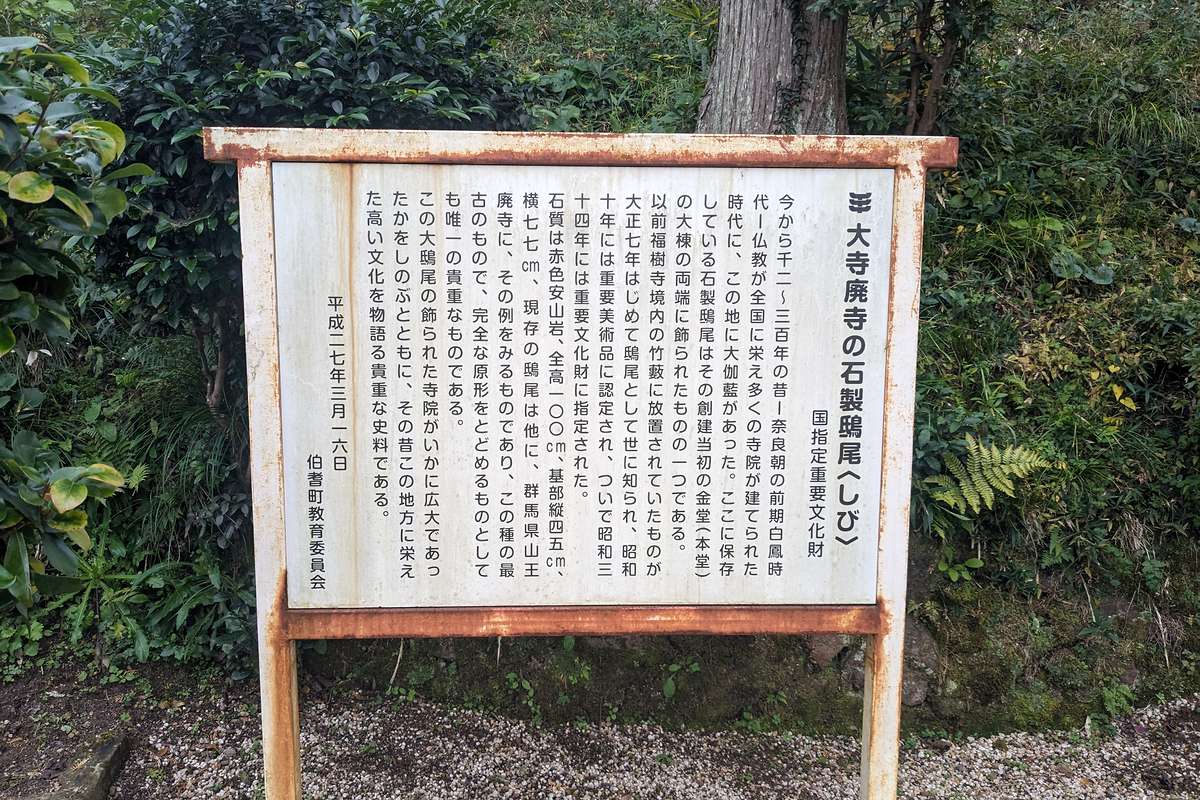 大寺廃寺の石製鴟尾〈しび〉
国指定重要文化財
今から千二〜三百年の昔ー奈良朝の前期白鳳時
代ー仏教が全国に栄え多くの寺院が建てられた
時代に、この地に大伽藍があった。ここに保存
している石製鴟尾はその創建当初の金堂(本堂)
の大棟の両端に飾られたものの一つである。
以前福樹寺境内の竹藪に放置されていたものが
大正七年はじめて鴟尾として世に知られ、昭和
十年には重要美術品に認定され、ついで昭和三
十四年には重要文化財に指定された。
石質は赤色安山岩、全高一〇〇㎝、基部縦四五㎝、
横七七㎝、現存の鴟尾は他に、群馬県山王
廃寺に、その例をみるものであり、この種の最
古のもので、完全な原形をとどめるものとして
も唯一の貴重なものである。
この大鴟尾の飾られた寺院がいかに広大であっ
たかをしのぶとともに、その昔この地方に栄え
た高い文化を物語る貴重な史料である。
平成二七年三月一六日
伯耆町教育委員会